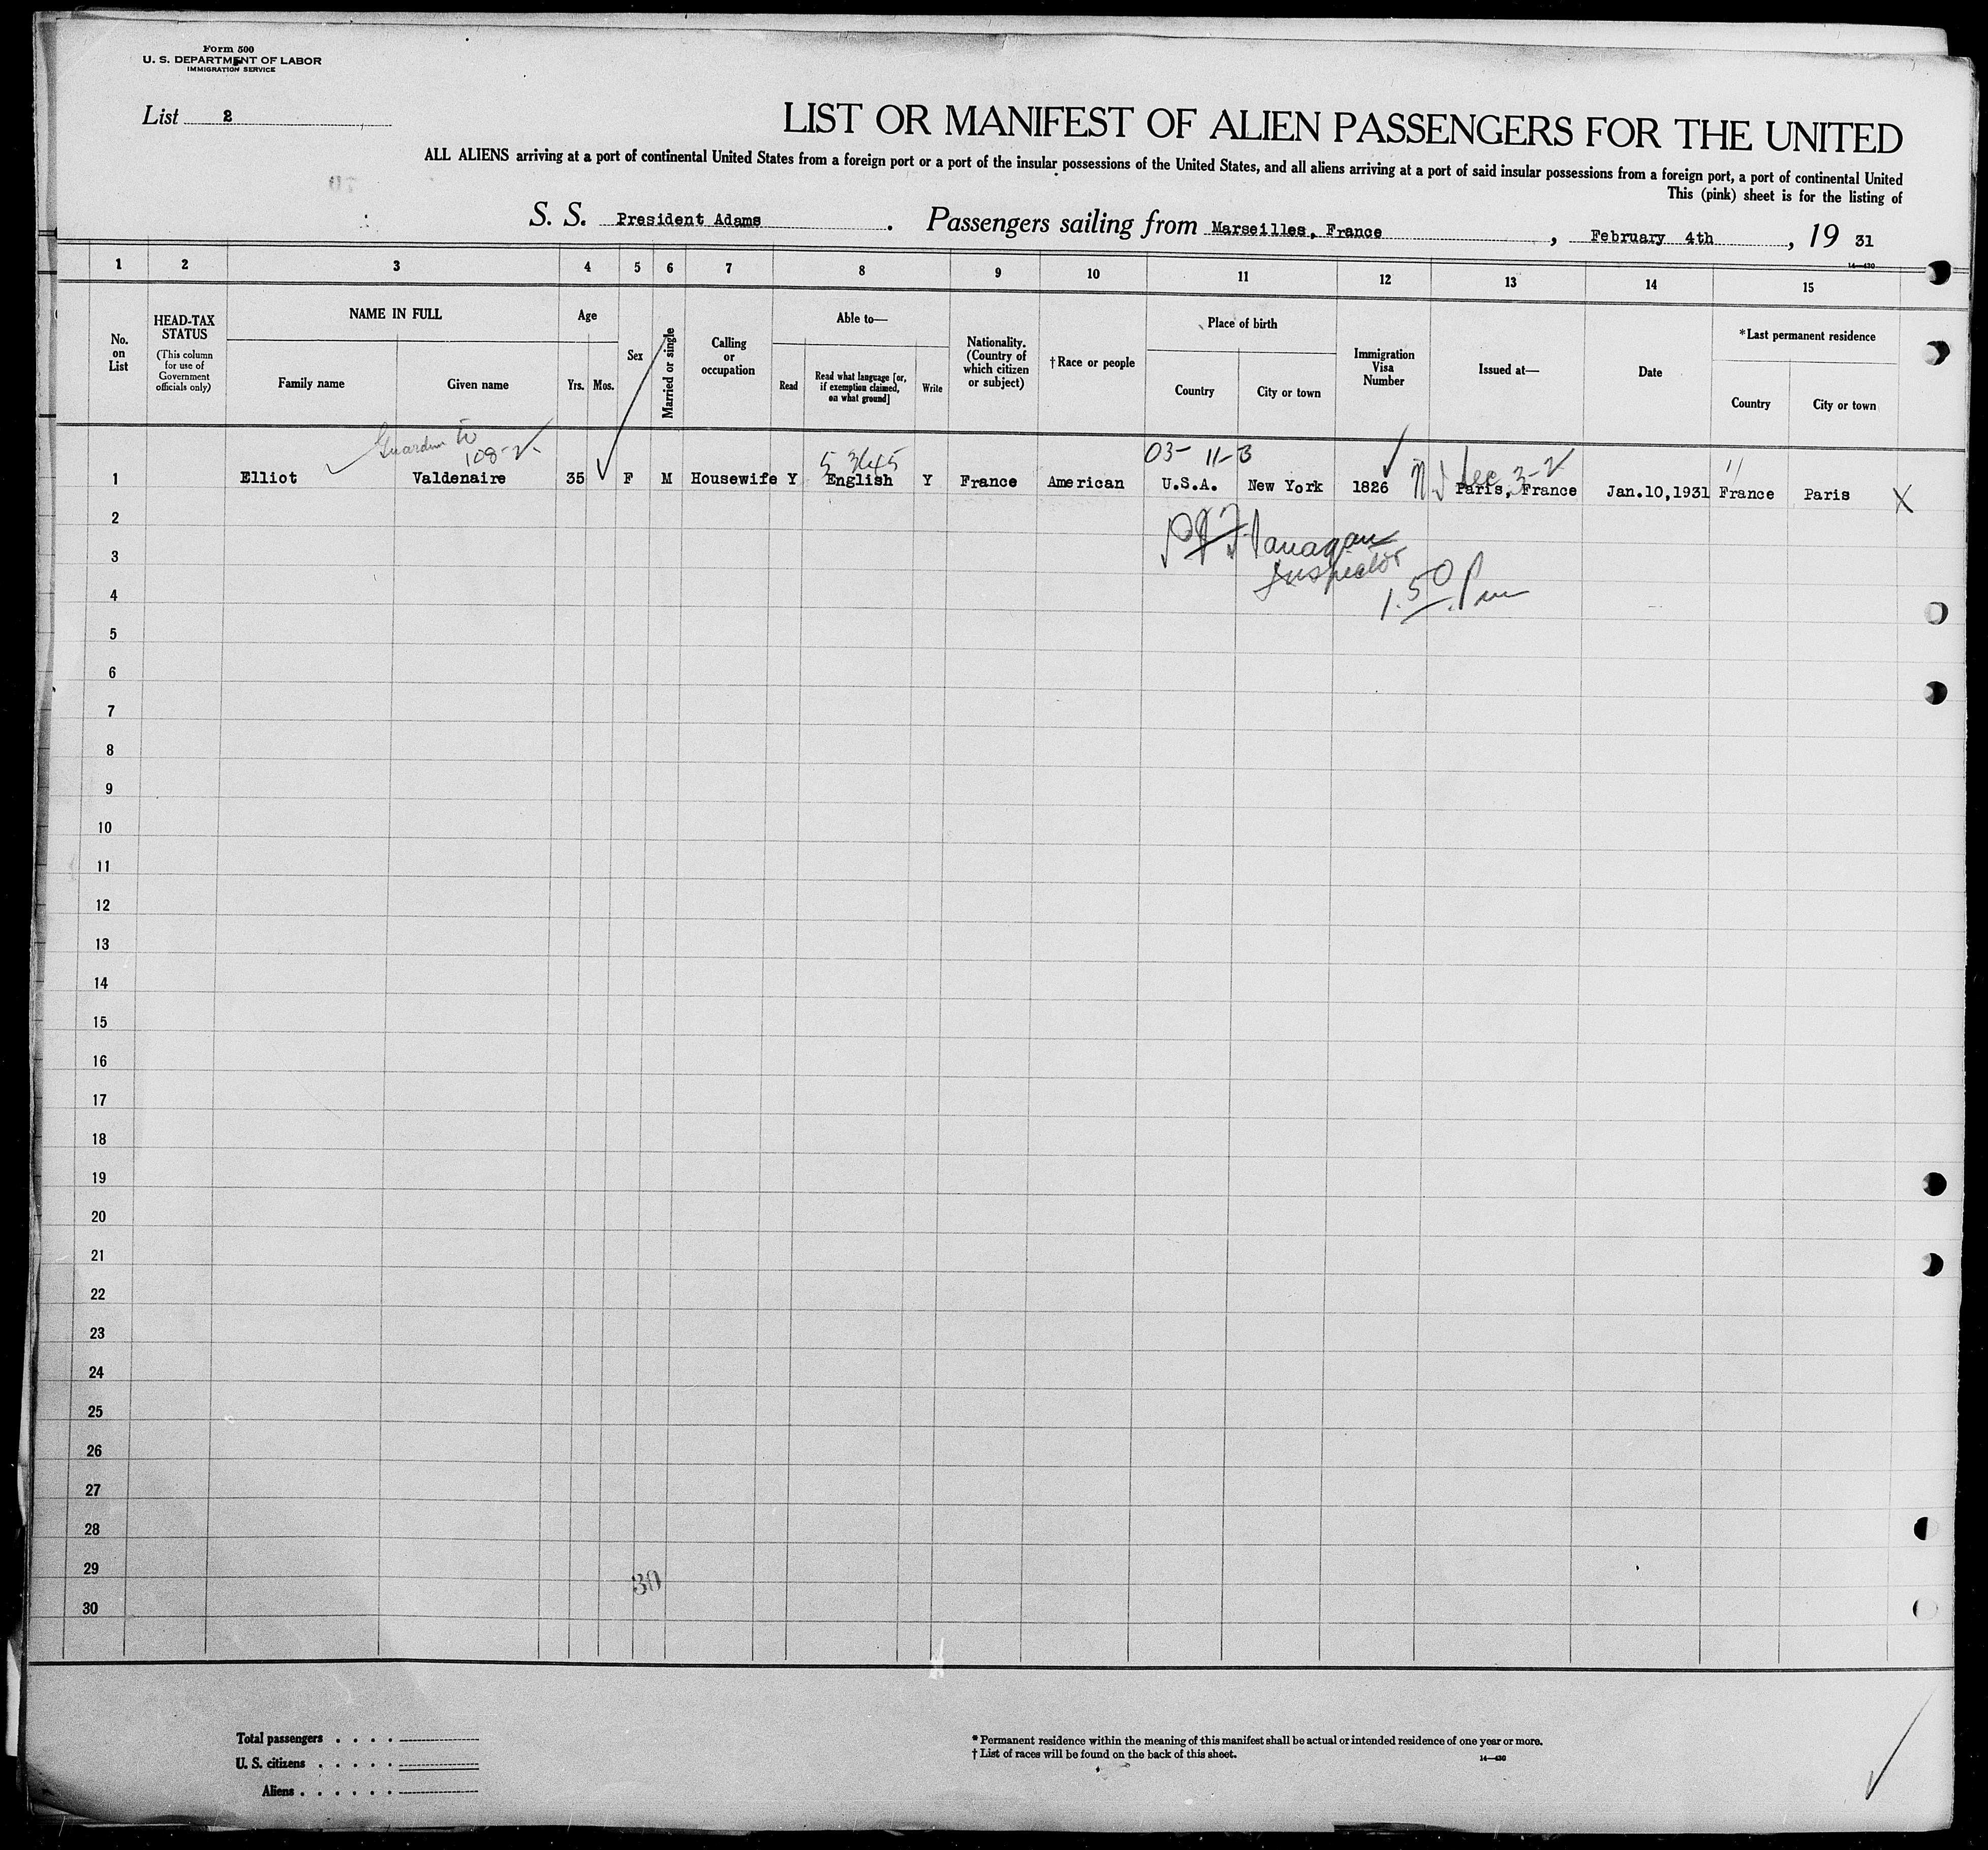 Form 500
U. S. DEPARTMENT OF LABOR
IMMIGRATION SERVICE
List 2
LIST OR MANIFEST OF ALIEN PASSENGERS FOR THE UNITED
ALL ALIENS arriving at a port of continental United States from a foreign port or a port of the insular possessions of the United States, and all aliens arriving at a port of said insular possessions from a foreign port, a port of continental United
This (pink) sheet is for the listing of
S. S. President Adams. Passengers sailing from Marseilles, France, February 4th, 19 31
14—430
1 2 3 4 5 6 7 8 9 10 11 12 13 14 15
No. on List
HEAD-TAX STATUS
(This column for use of Government officials only)
NAME IN FULL
Family name
Given name
Age
Yrs.
Mos.
Sex
Married or single
Calling or occupation
Able to—
Read
Read what language [or, if exemption claimed, on what ground]
Write
Nationality. (Country of which citizen or subject)
†Race or people
Place of birth
Country
City or town
Immigration Visa Number
Issued at—
Date
*Last permanent residence
Country
City or town
to
108-2
5 3645
03- 11-3
3-2
1 Elliot Valdenaire 35 F M Housewife Y English Y France American U.S.A. New York 1826 Paris, France Jan.10,1931 France Paris X
Flanagan
Inspector
1.50 Pm
2
3
4
5
6
7
8
9
10
11
12
13
14
15
16
17
18
19
20
21
22
23
24
25
26
27
28
29
30
30
Total passengers . . . .
U. S. citizens . . . . .
Aliens . . . . . .
* Permanent residence within the meaning of this manifest shall be actual or intended residence of one year or more.
† List of races will be found on the back of this sheet.
14—430